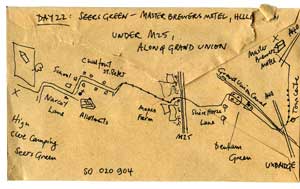 DAY 22: SEERS GREEN - MASTER BREWERS MOTEL, HILL
UNDER M25,
ALONG GRAND UNION
Chalfont
St. Peter
School
Narcot
Lane
Allotments
High
Camping
Seers Green
SO 020 904
Farm
M25
Lane
Grand Union Canal
Master
Brewers
Motel
A40
Denham
Green
UXBRIDGE